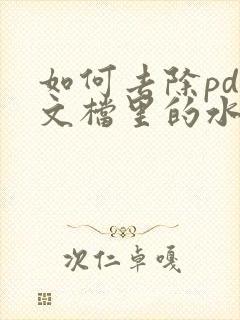 如何去除pd
文檔里的水
次仁卓嘎